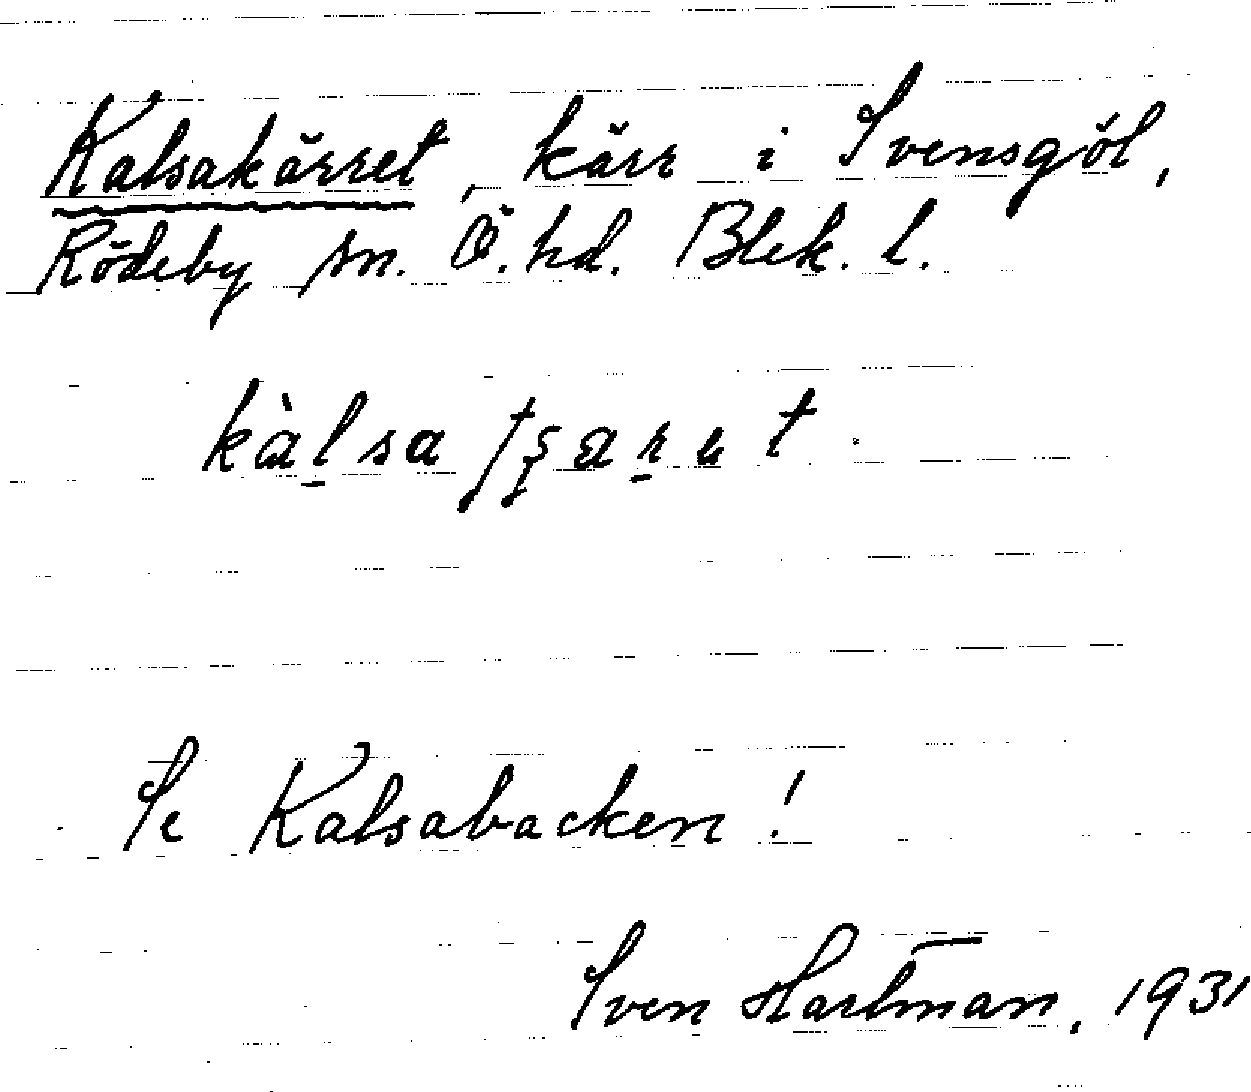 Kalsakärret, kärr i Svensgöl,
Rödeby sn. Ö. hd. Blek. l.
kàlsa
Se Kalsabacken!
Sven Hartman, 1931